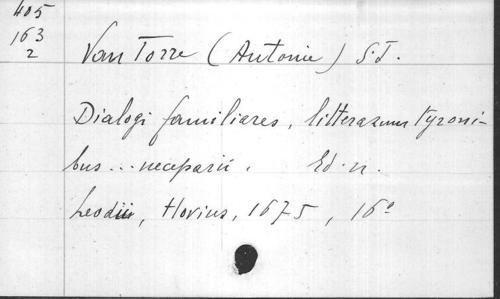 405
163
2
Van Torre (Antonie) S.J.
Dialogi familiares, litterarum tyroni-
bus... necessarii. Ed. n.
Leodii, Hovius, 1675, 16°